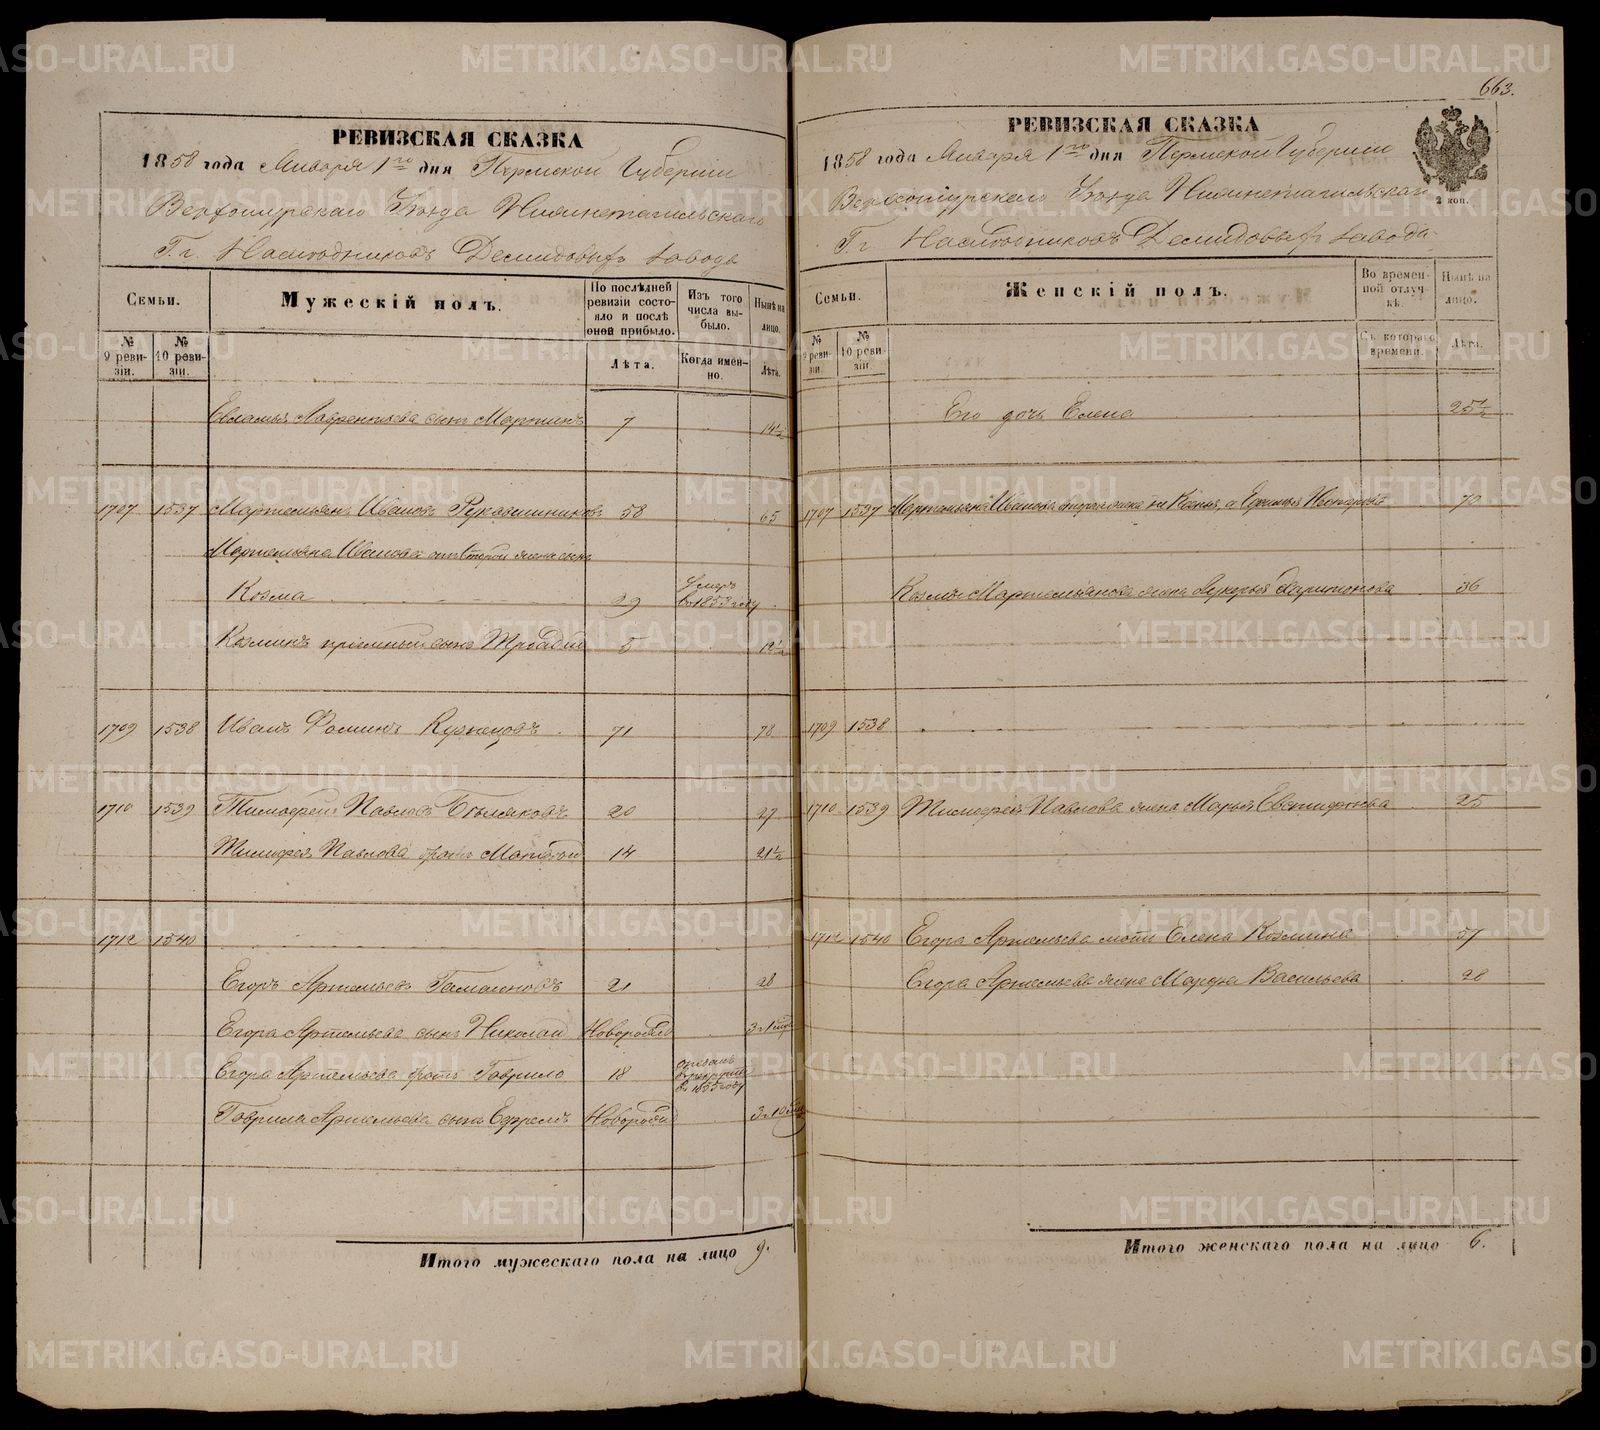 663.
РЕВИЗСКАЯ СКАЗКА
1858 года Января 1го дня Пермской Губернии
Верхотурскаго Уѣзда Нижнетагильскаго
Г.г. Наслѣдниковъ Демидовыхъ завода
Семьи.
Мужескій полъ.
По послѣдней ревизіи состояло и послѣ оной прибыло.
Изъ того числа выбыло.
Нынѣ на лицо.
№ 9 ревизіи.
№ 10 ревизіи.
Лѣта.
Когда именно.
Лѣта.
Евлампья Лаврентьева сынъ Мартинъ 7 14½
1707 1537 Мартемьянъ Ивановъ Рукавишниковъ 58 65
Мартемьяна Иванова отъ второй жены сынъ
Козма 29 Умеръ въ 1853 году
Козминъ пріемный сынъ 5 12½
1709 1538 Иванъ Фоминъ Кузнецовъ 71 78
1710 1539 Тимофей Павловъ 20 27
Тимофея Павлова братъ Матвей 14 21½
1712 1540
Егоръ Артемьевъ 21 28
Егора Артемьева сынъ Николай Новорожд
Егора Артемьева братъ Гаврило 18 отданъ въ рекруты въ 1855 году
Гаврила Артемьева сынъ Ефремъ Новорожд
Итого мужескаго пола на лицо 9.
РЕВИЗСКАЯ СКАЗКА
1858 года Января 1го дня Пермской Губерніи
Верхотурскаго Уѣзда Нижнетагильскаго
2 коп.
Г.г. Наслѣдниковъ Демидовыхъ завода
Семьи.
Женскій полъ.
Во временной отлучкѣ.
Нынѣ на лицо.
№ 9 ревизіи.
№ 10 ревизіи.
Съ котораго времени.
Лѣта.
Его дочь Елена 25½
1707 1537 Мартемьяна Иванова 70
Козмы Мартемьянова жена Лукерья Харитонова 36
1709 1538
1710 1539 Тимофея Павлова жена Марья Евстифеева 25
1712 1540 Егора Артемьева мать Елена Козмина 57
Егора Артемьева жена Васильева 28
Итого женскаго пола на лицо 6.
METRIKI.GASO-URAL.RU